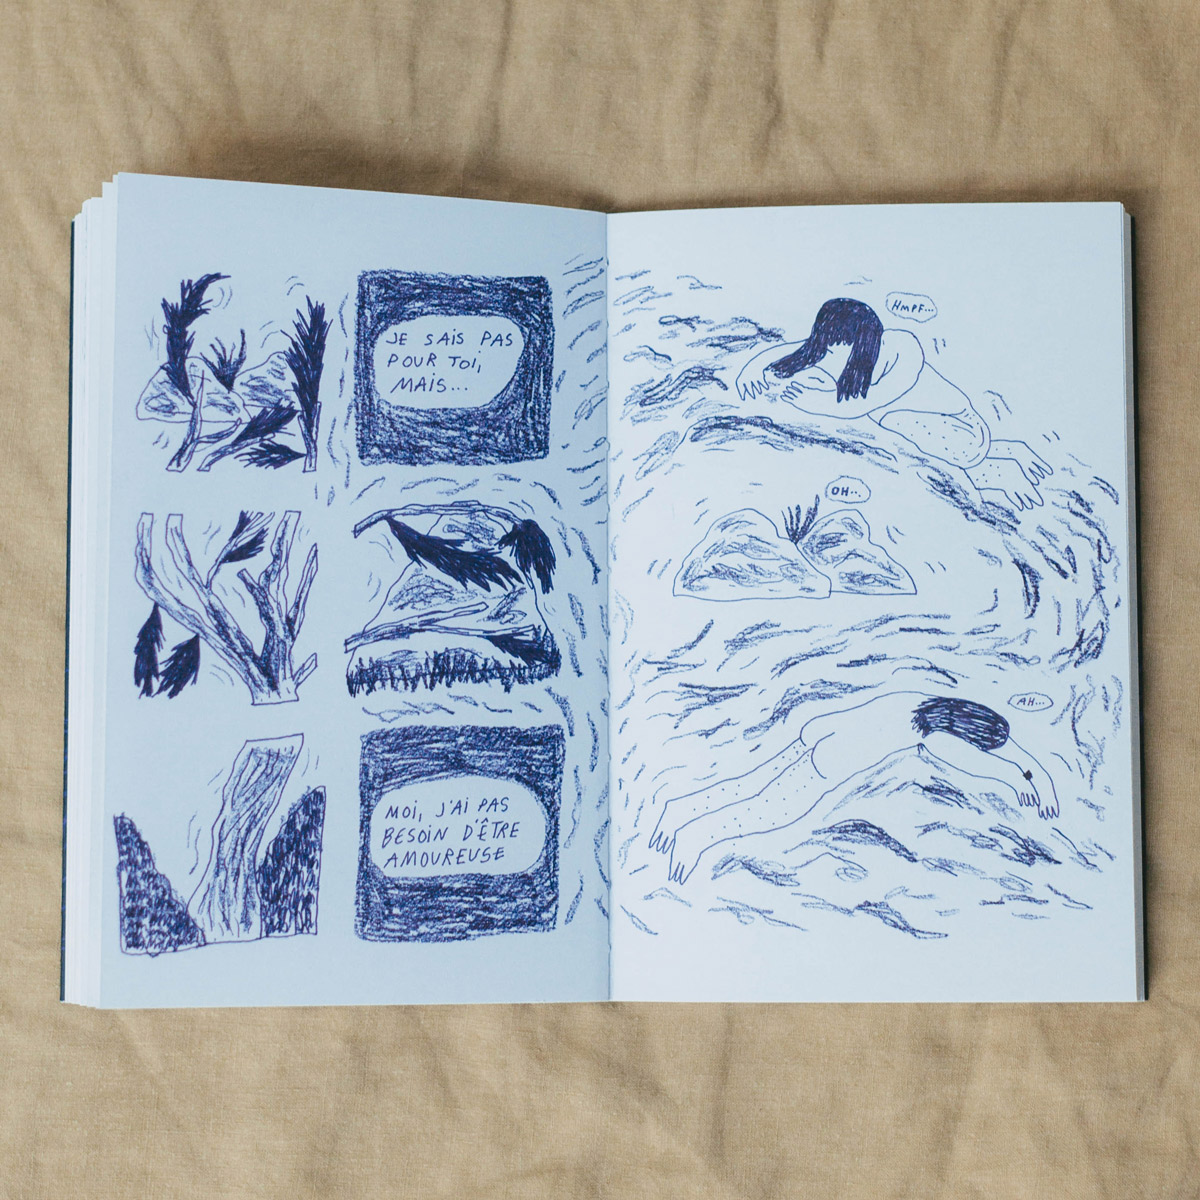 JE SAIS PAS
POUR TOI,
MAIS...
MOI, J'AI PAS
BESOIN D'ÊTRE
AMOUREUSE
HMPF...
OH...
AH...